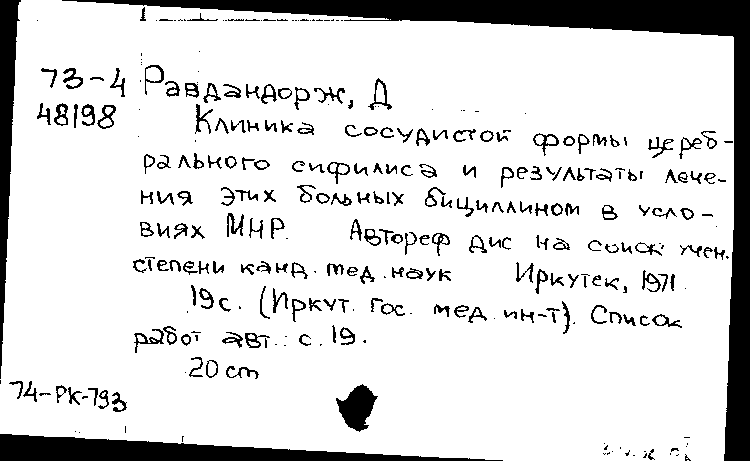 73-4 Равдандорж, Д
48198 Клиника сосудистой формы цереб-
рального сифилиса и результаты лече-
ния этих больных бициллином в усло-
виях МНР. Автореф дис на соиск учен.
степени канд. мед. наук Иркутск, 1971.
19с. (Иркут. гос. мед. ин-т). Список
работ авт.: с. 19.
20 cm
74-РК-793